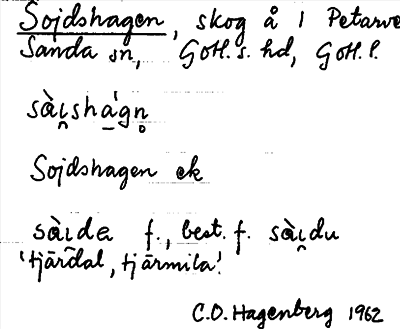 Sojdshagen, skog å 1 Petarve
Sanda sn, Gotl. s. hd, Gotl. l.
sài̯shá̱gn̥
Sojdshagen ek
sài̯de f., best. f. sài̯du
'tjärdal, tjärmila'.
C.O. Hagenberg 1962